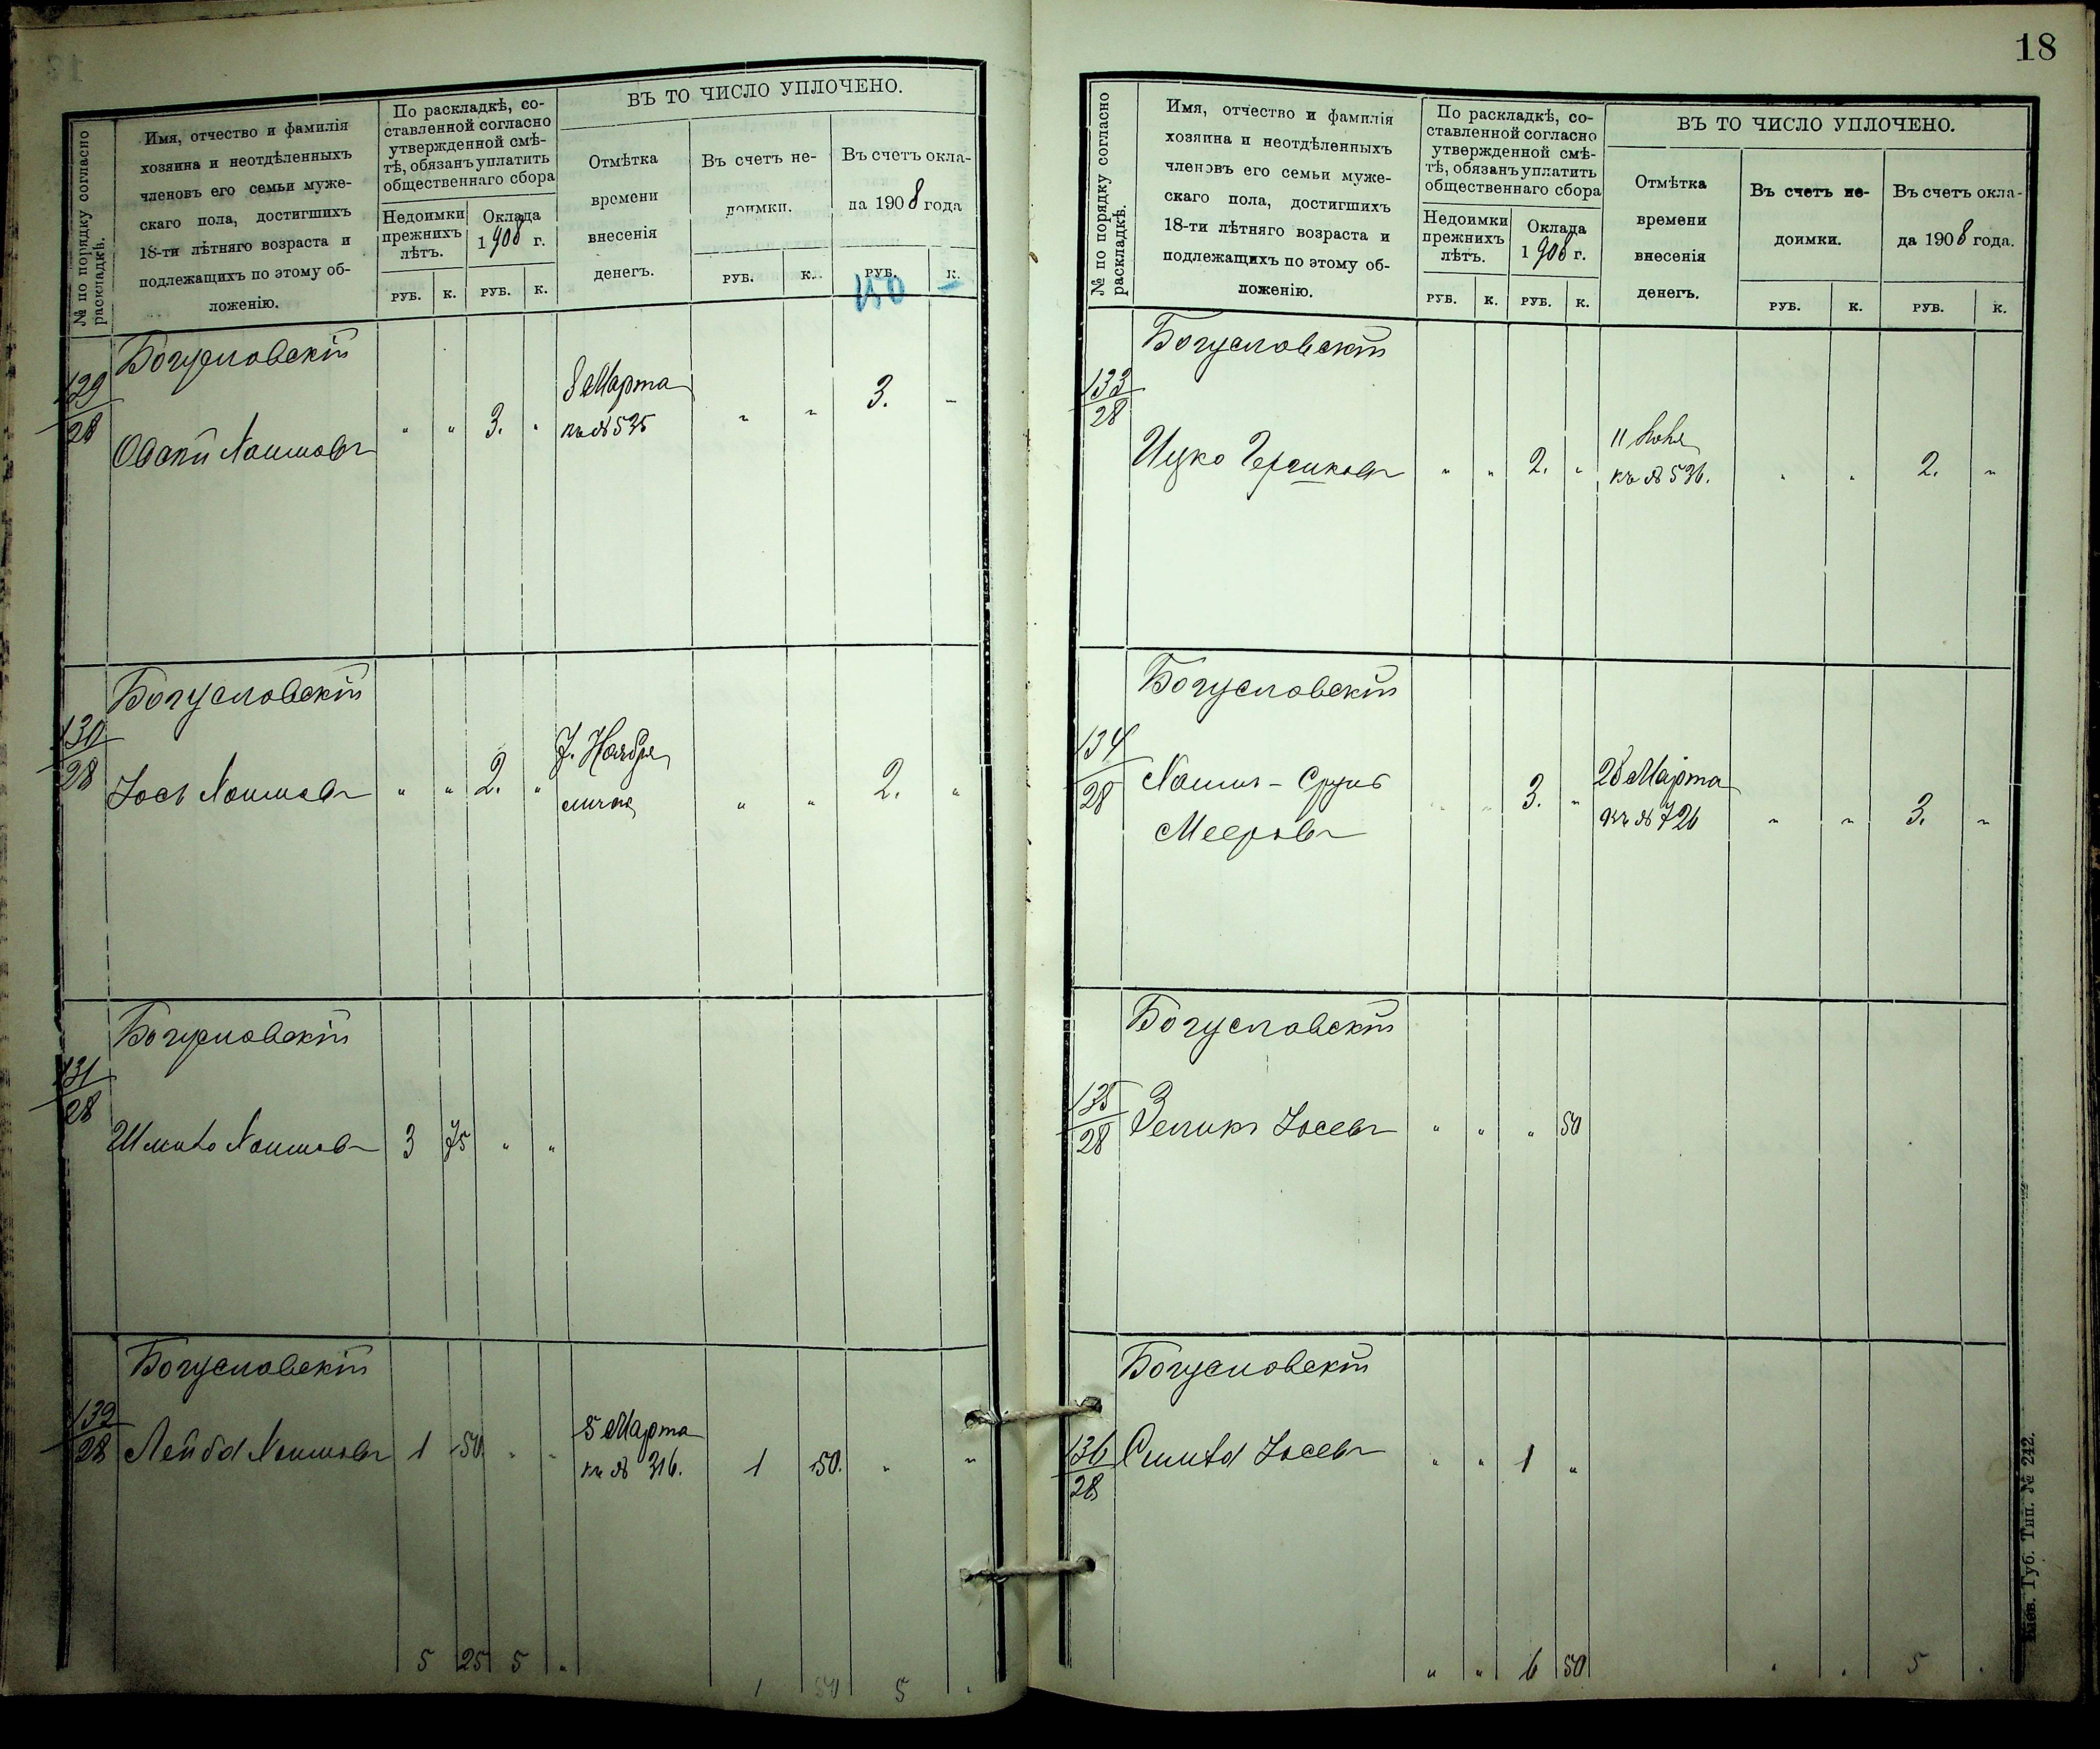 ВЪ ТО ЧИСЛО УПЛОЧЕНО.
№ по порядку согласно раскладкѣ.
Имя, отчество и фамилія
хозяина и неотдѣленныхъ
членовъ его семьи муже-
скаго пола, достигшихъ
18-ти лѣтняго возраста и
подлежащихъ по этому об-
ложенію.
По раскладкѣ, со-
ставленной согласно
утвержденной смѣ-
тѣ, обязанъ уплатить
общественнаго сбора
Недоимки
прежнихъ
лѣтъ.
Оклада
1908 г.
Отмѣтка
времени
внесенія
денегъ.
Въ счетъ не-
доимки.
Въ счетъ окла-
да 1908 года
РУБ. К. РУБ. К. РУБ. К. РУБ. К.
Богуславскій
129
28
" " 3. "
8 Марта
къ № 535
" " 3. –
Богуславскій
130
28
Іось Хаимовъ
" " 2. "
7. Ноября
" " 2. "
Богуславскій
131
28
Хаимовъ
3 75 " "
Богуславскій
132
28
Лейба Хаимовъ
1 50. " "
5 Марта
къ № 316.
1 50. " "
5 25 5 "
1 50 5 "
18
№ по порядку согласно раскладкѣ.
Имя, отчество и фамилія
хозяина и неотдѣленныхъ
членовъ его семьи муже-
скаго пола, достигшихъ
18-ти лѣтняго возраста и
подлежащихъ по этому об-
ложенію.
По раскладкѣ, со-
ставленной согласно
утвержденной смѣ-
тѣ, обязанъ уплатить
общественнаго сбора
Недоимки
прежнихъ
лѣтъ.
Оклада
1908 г.
ВЪ ТО ЧИСЛО УПЛОЧЕНО.
Отмѣтка
времени
внесенія
денегъ.
Въ счетъ не-
доимки.
Въ счетъ окла-
да 1908 года.
РУБ. К. РУБ. К. РУБ. К. РУБ. К.
Богуславскій
133
28
Ицко
" " 2. "
11
къ № 536.
" " 2. "
Богуславскій
134
28
Хаимъ-Сруль
Мееровъ
" " 3. "
28 Марта
къ № 726
" " 3. "
Богуславскій
135
28
Зеликъ Іосевъ
" " " 50
Богуславскій
136
28
Іосевъ
" " 1 "
" " 6 50
" " 5 "
Кіев. Губ. Тип. № 242.